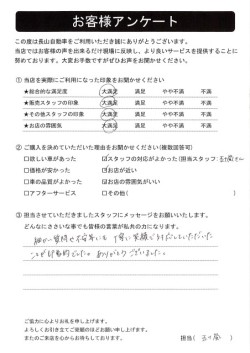 お客様アンケート
この度は長山自動車をご利用いただき誠にありがとうございます。
当店ではお客様の声を出来るだけ現場に反映し、より良いサービスを提供することに
努めております。大変お手数ですがぜひお声をお聞かせください。
① 当店を実際にご利用になった印象をお聞かせください
★総合的な満足度 大満足 満足 やや不満 不満
★販売スタッフの印象 大満足 満足 やや不満 不満
★その他スタッフの印象 大満足 満足 やや不満 不満
★お店の雰囲気 大満足 満足 やや不満 不満
② ご購入を決めていただいた理由をお聞かせください(複数回答可)
□欲しい車があった ☑スタッフの対応がよかった(担当スタッフ:
□価格が安かった ☑お店が近い
□車の品質がよかった ☑お店の雰囲気がいい
□アフターサービス □その他( )
③ 担当させていただきましたスタッフにメッセージをお願いいたします。
どんなにささいな事でも皆様の言葉が私共の力になります。
細かい質問や不安等にも丁寧に笑顔で対応していただいた
ことが印象的でした。ありがとうございました。
ご協力に心よりお礼を申し上げます。
よろしくお引き立てご愛顧のほどお願い申し上げます。
またのご来店を心からお待ちしております。
担当( )